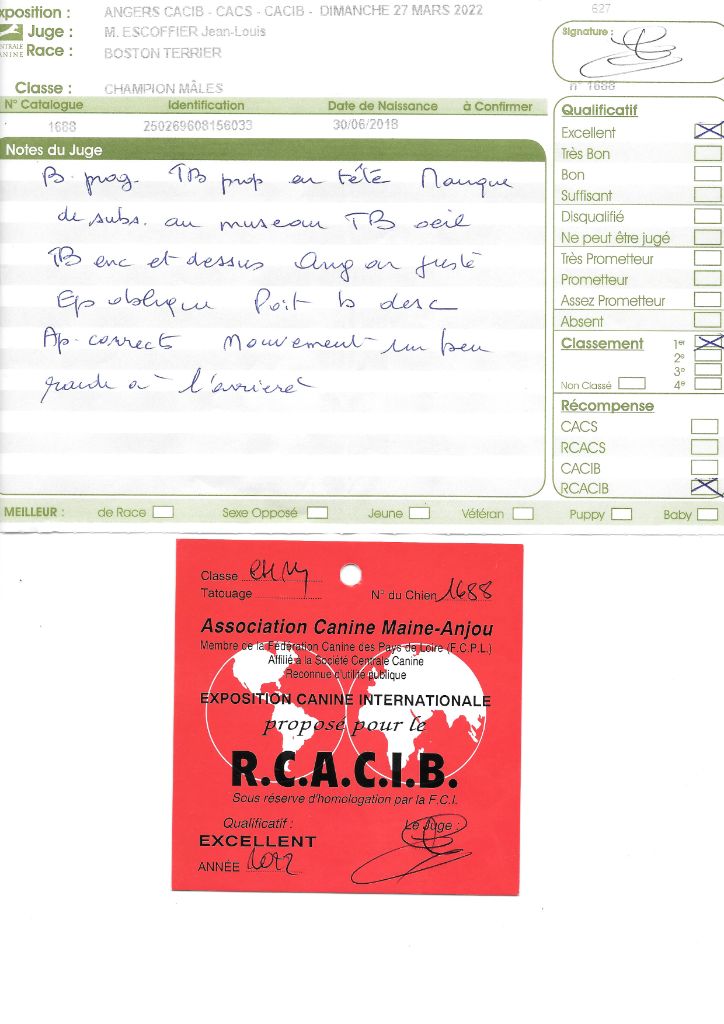 xposition : ANGERS CACIB - CACS - CACIB - DIMANCHE 27 MARS 2022 627
Juge : M. ESCOFFIER Jean-Louis
NTRALE
ANINE Race : BOSTON TERRIER
Signature :
Classe : CHAMPION MÂLES n° 1688
N° Catalogue Identification Date de Naissance à Confirmer
1688 250269608156033 30/06/2018
Notes du Juge
B. prog. TB prop en tête Manque
de subs. au museau TB oeil
TB enc et dessus Ang av juste
Ep oblique Poit b desc
Ap. correct Mouvement un peu
à l'arrière
Qualificatif
Excellent
Très Bon
Bon
Suffisant
Disqualifié
Ne peut être jugé
Très Prometteur
Prometteur
Assez Prometteur
Absent
Classement 1er
2e
3e
Non Classé 4e
Récompense
CACS
RCACS
CACIB
RCACIB
MEILLEUR : de Race Sexe Opposé Jeune Vétéran Puppy Baby
Classe CHM
Tatouage N° du Chien 1688
Association Canine Maine-Anjou
Membre de la Fédération Canine des Pays de Loire (F.C.P.L.)
Affilié à la Société Centrale Canine
Reconnue d'utilité publique
EXPOSITION CANINE INTERNATIONALE
proposé pour le
R.C.A.C.I.B.
Sous réserve d'homologation par la F.C.I.
Qualificatif : Le Juge :
EXCELLENT
ANNÉE 2022